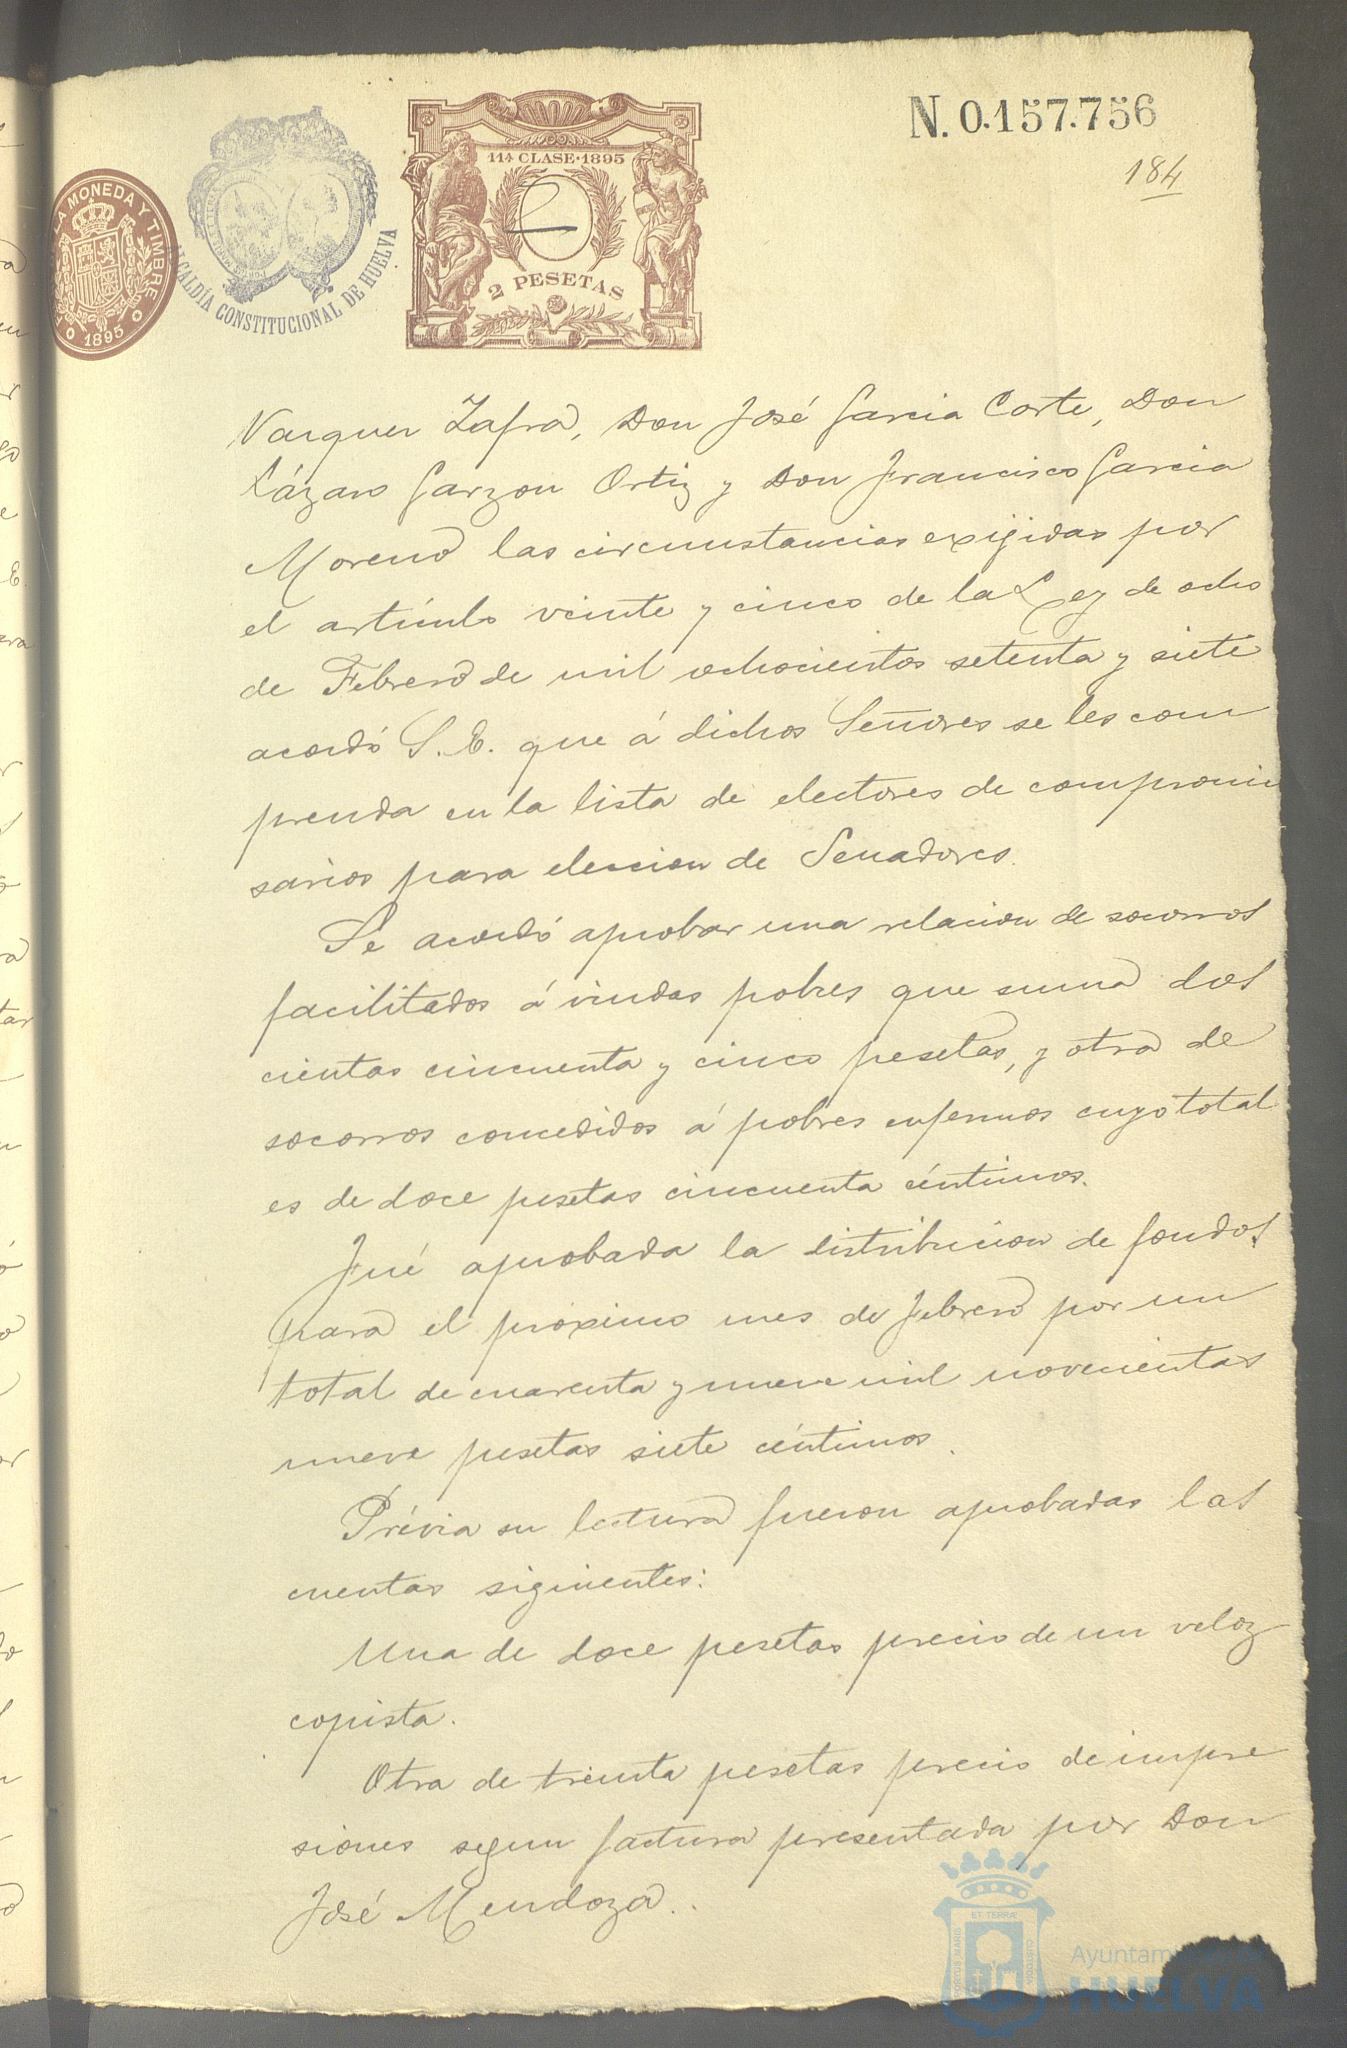 N. 0.157.756
184
LA MONEDA Y TIMBRE
1895
ALCALDÍA CONSTITUCIONAL DE HUELVA
11ª CLASE·1895
2 PESETAS
Vazquez Zafra, Don José Garcia Corte, Don
Lázaro Garzon Ortiz y Don Francisco Garcia
Moreno las circunstancias exijidas por
el artículo veinte y cinco de la Ley de ocho
de Febrero de mil ochocientos setenta y siete
acordó S. E. que á dichos Señores se les com
prenda en la lista de electores de compromi
sarios para eleccion de Senadores.
Se acordó aprobar una relacion de socorros
facilitados á viudas pobres que suma dos
cientas cincuenta y cinco pesetas, y otra de
socorros concedidos á pobres enfermos cuyo total
es de doce pesetas cincuenta céntimos.
Fué aprobada la distribucion de fondos
para el próximo mes de Febrero por un
total de cuarenta y nueve mil novecientas
nueve pesetas siete céntimos.
Prévia su lectura fueron aprobadas las
cuentas siguientes:
Una de doce pesetas precio de un veloz
copista.
Otra de treinta pesetas precio de impre
siones segun factura presentada por Don
José Mendoza.
ET TERRÆ
PORTUS MARIS
CUSTODIA
HUELVA